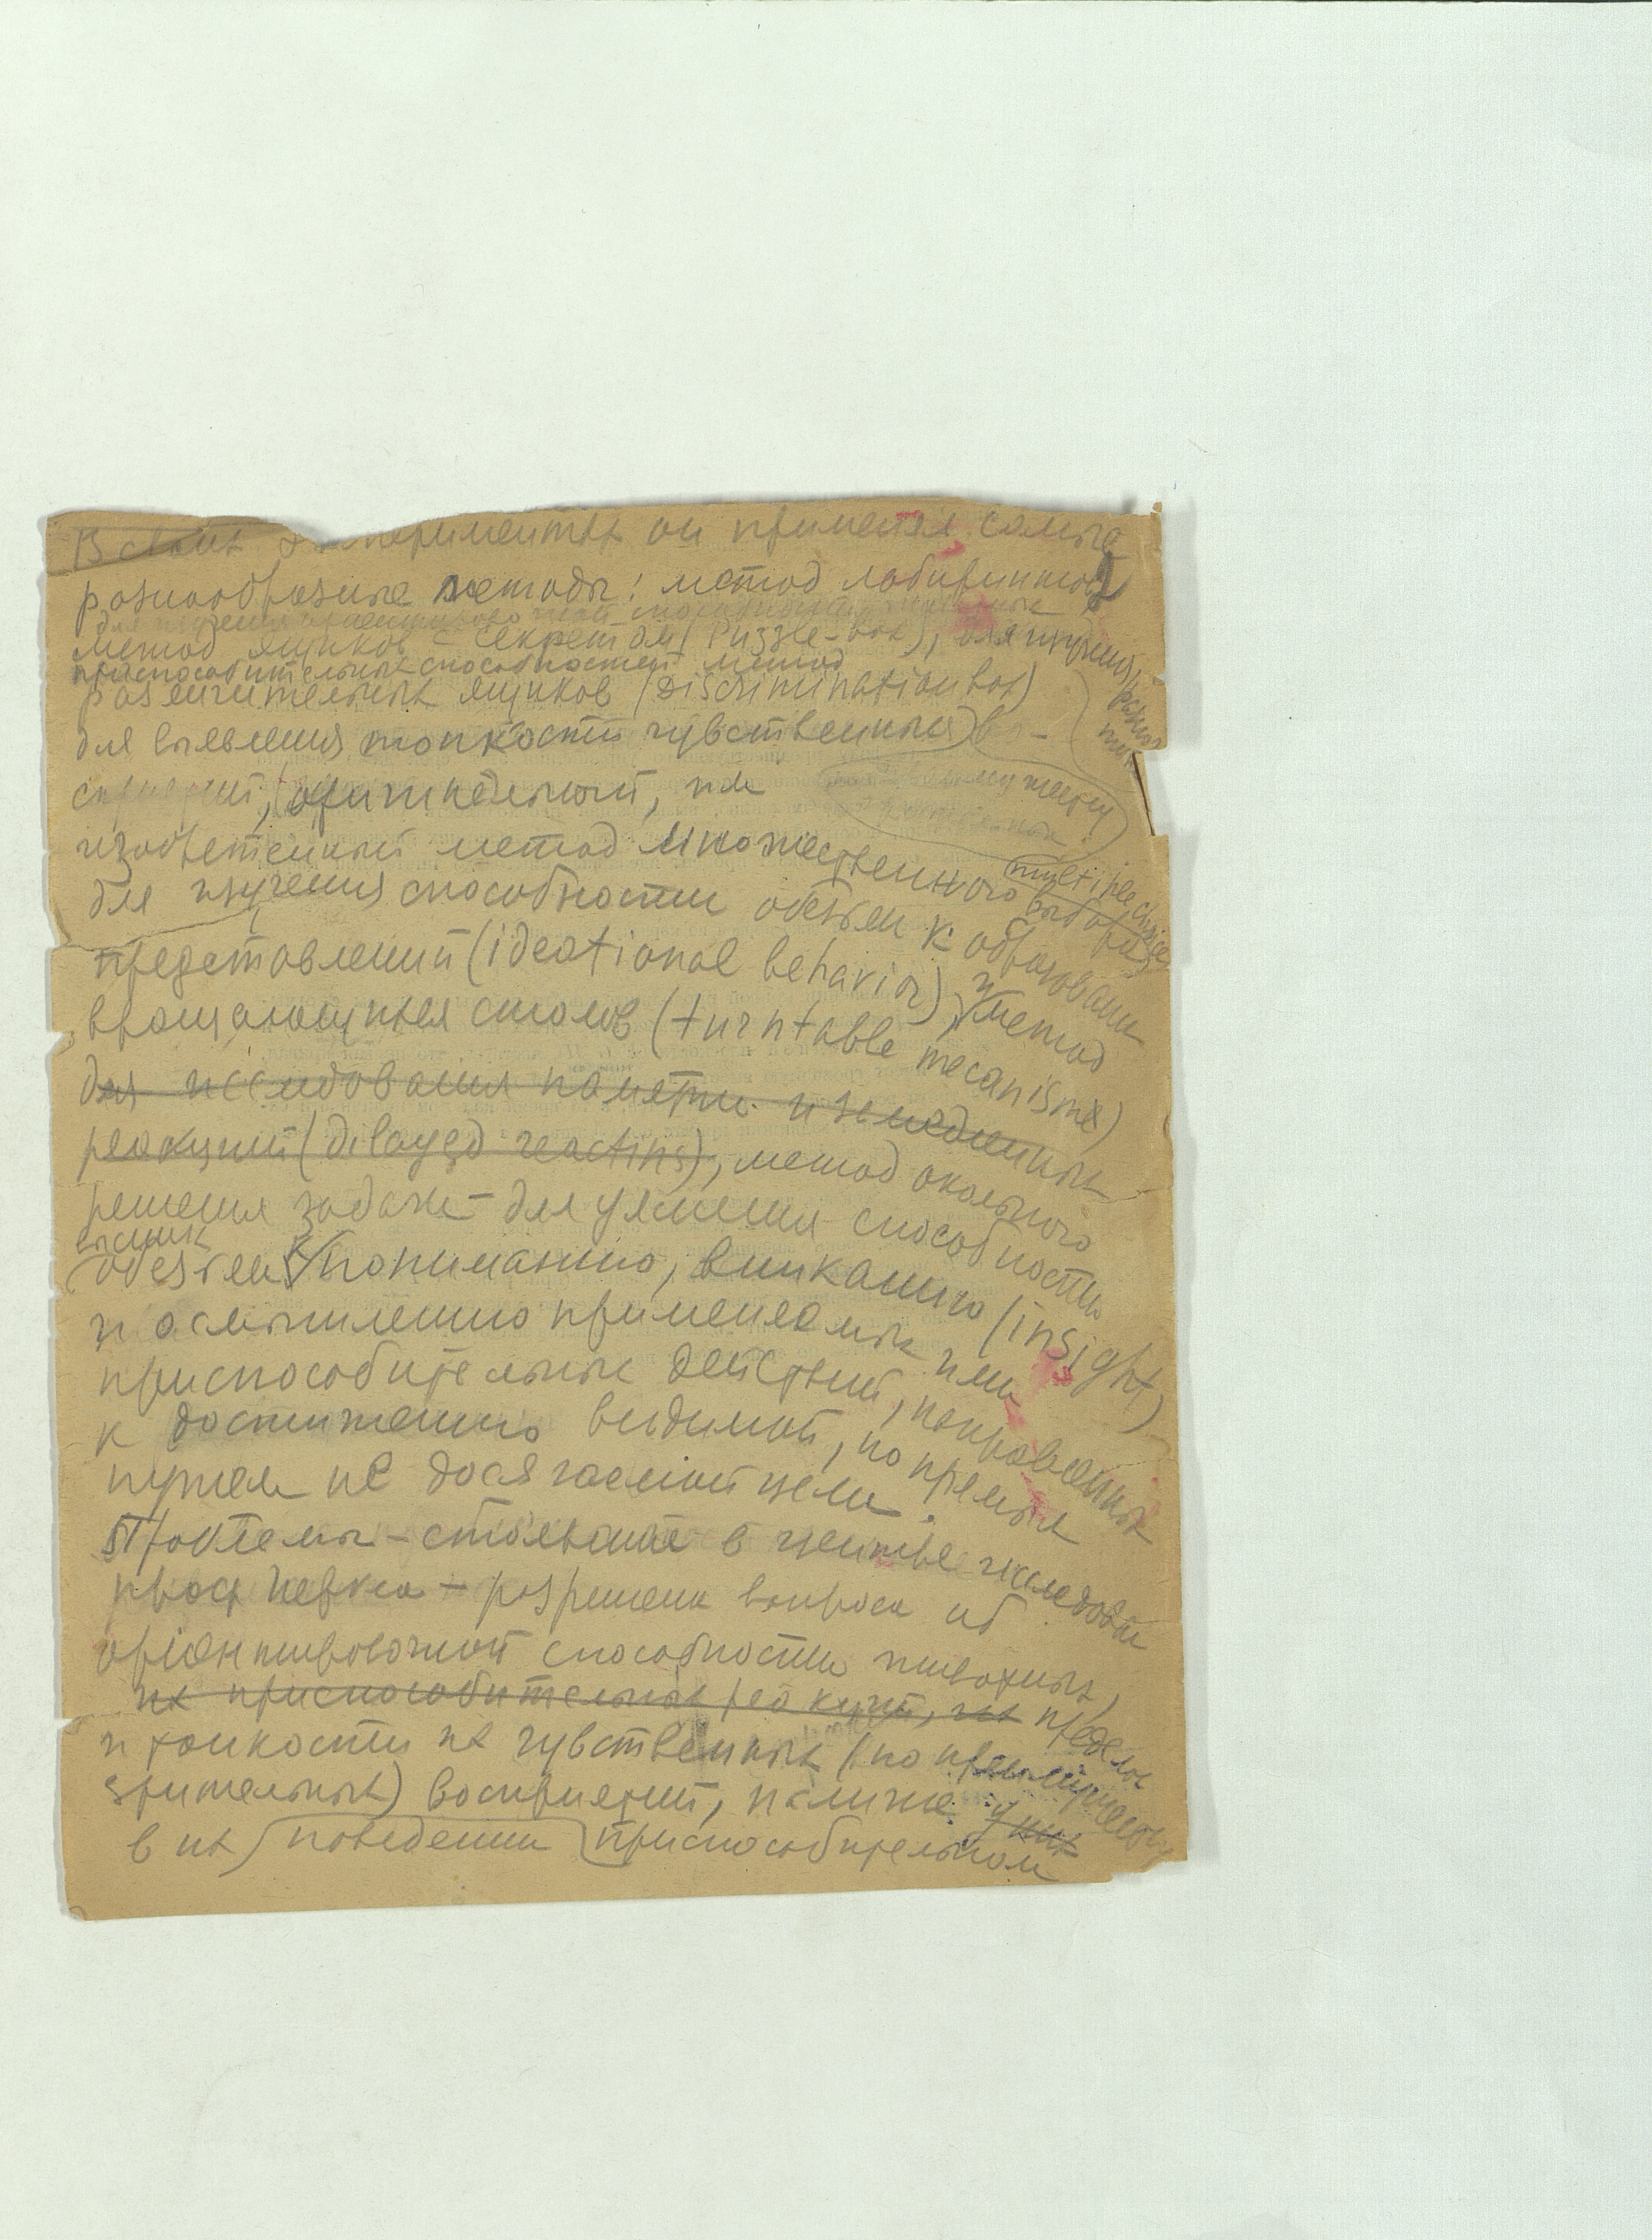 В своих экспериментах он применял самые
разнообразные методы: метод лабиринтов
для изучения ориентировочной способности животных
метод ящиков с секретом (Puzzle-box), для изучения
приспособительных способностей метод
различительных ящиков (Discrimination box)
для выявления тонкости чувственных во-
сприятий, оригинальный, им
изобретенный метод множественного выбора
multiple choice
для изучения способности обезьян к образованию
представлений (ideational behavior), и метод
вращающихся столов (turntable mecanisme)
для исследования памяти и замедленных
реакций (dilayed reactins), метод окольного
решения задачи – для уяснения способности
высших
обезьян к пониманию, вниканию (insight)
и осмышлению применяемых ими
приспособительных действий, направленных
к достижению видимой, но прямым
путем не досягаемой цели.
Проблемы – стоявшие в центре исследован
проф Иеркса – разрешени вопроса об
ориентировочной способности животных,
их приспособительных реакций, их пределов
и тонкости их чувственных (по преимуществу
зрительных) восприятий, наличие у них
в их поведении приспособительном